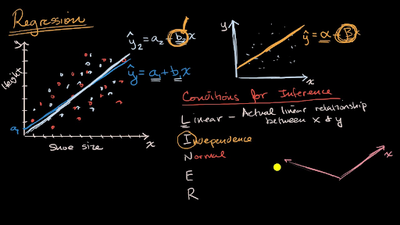 Regression
ŷ₂ = a₂ + b₂x
y
ŷ = a₁ + b₁x
Height
a₁
Shoe size
x
y
ŷ = α + βx
x
Conditions for Inference
Linear - Actual linear relationship
between x & y
Independence
Normal
E
R
x